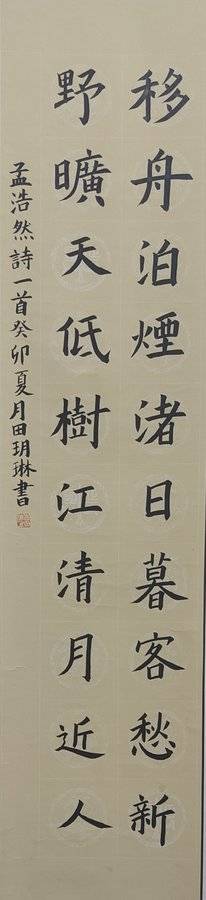 移舟泊煙渚日暮客愁新
野曠天低樹江清月近人
孟浩然詩一首癸卯夏月田玥琳書